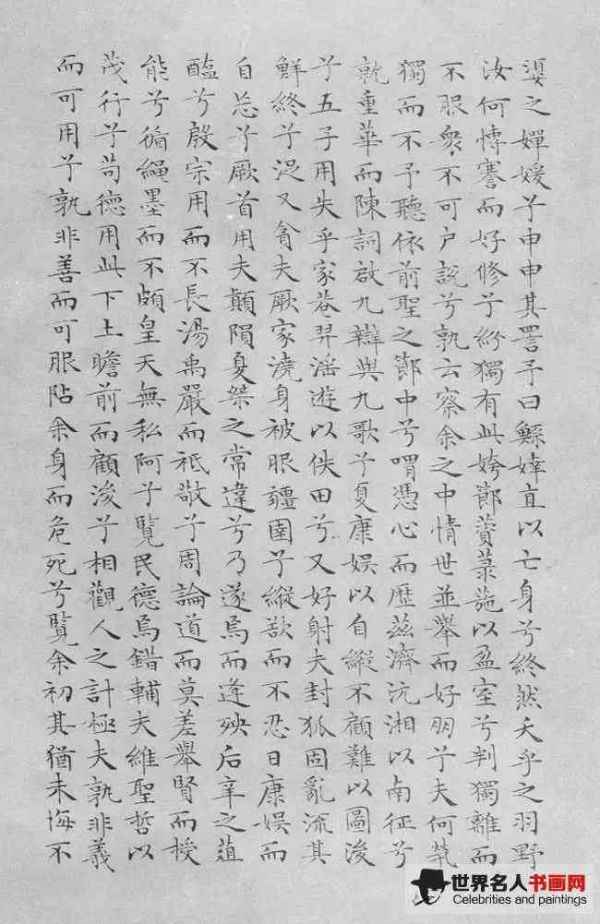 嬃之嬋媛兮申申其詈予曰鯀婞直以亡身兮終然夭乎之羽野
汝何博謇而好修兮紛獨有此姱節薋菉葹以盈室兮判獨離而
不服衆不可户說兮孰云察余之中情世並舉而好朋兮夫何茕
獨而不予聽依前聖之節中兮喟憑心而歷茲濟沅湘以南征兮
就重華而陳詞啟九辯與九歌兮夏康娛以自縱不顧難以圖後
兮五子用失乎家巷羿淫遊以佚田兮又好射夫封狐固亂流其
鮮終兮浞又貪夫厥家澆身被服彊圉兮縱欲而不忍日康娛而
自忘兮厥首用夫顛隕夏桀之常違兮乃遂焉而逢殃后辛之菹
醢兮殷宗用而不長湯禹嚴而祗敬兮周論道而莫差舉賢而授
能兮循繩墨而不頗皇天無私阿兮覽民德焉錯輔夫維聖哲以
茂行兮苟德用此下土瞻前而顧後兮相觀人之計極夫孰非義
而可用兮孰非善而可服阽余身而危死兮覽余初其猶未悔不
世界名人书画网
Celebrities and paintings